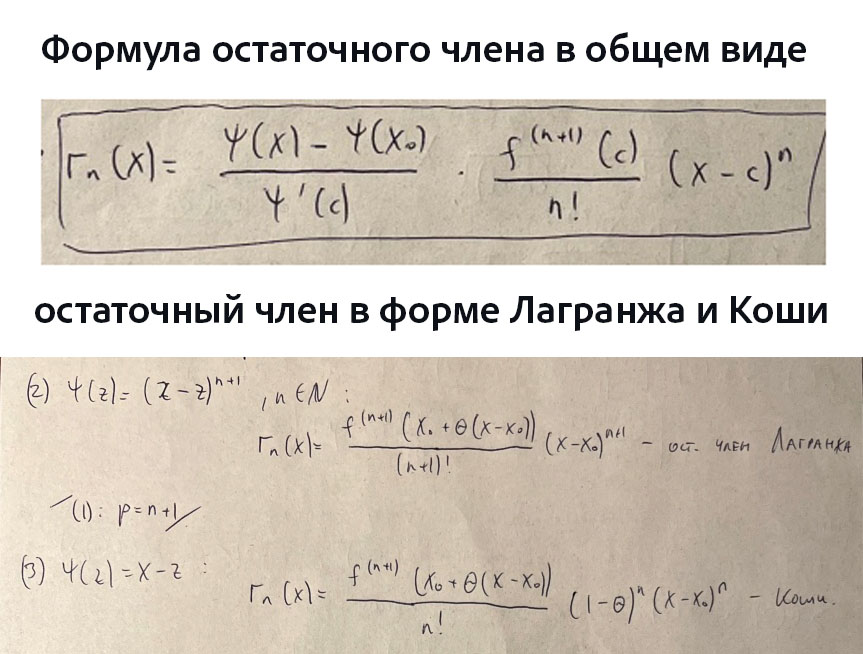 Формула остаточного члена в общем виде
rₙ(x) = (Ψ(x) − Ψ(x₀)) / Ψ'(c) · f⁽ⁿ⁺¹⁾(c) / n! (x − c)ⁿ
остаточный член в форме Лагранжа и Коши
(2) Ψ(z) = (x − z)ⁿ⁺¹, n ∈ N :
rₙ(x) = f⁽ⁿ⁺¹⁾(x₀ + θ(x − x₀)) / (n+1)! (x − x₀)ⁿ⁺¹ – ост. член Лагранжа
/(1): p = n+1/
(3) Ψ(z) = x − z :
rₙ(x) = f⁽ⁿ⁺¹⁾(x₀ + θ(x − x₀)) / n! (1 − θ)ⁿ (x − x₀)ⁿ – Коши.